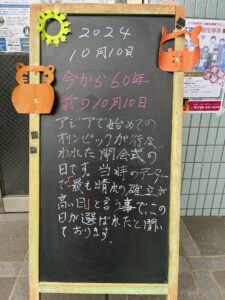 2024
10月10日
今から60年
前の10月10日
アジアで始めての
オリンピックが行な
われた開会式の
日です。当時のデーター
で「最も晴れの確立が
高い日」と言う事でこの
日が選ばれたと聞い
ております。